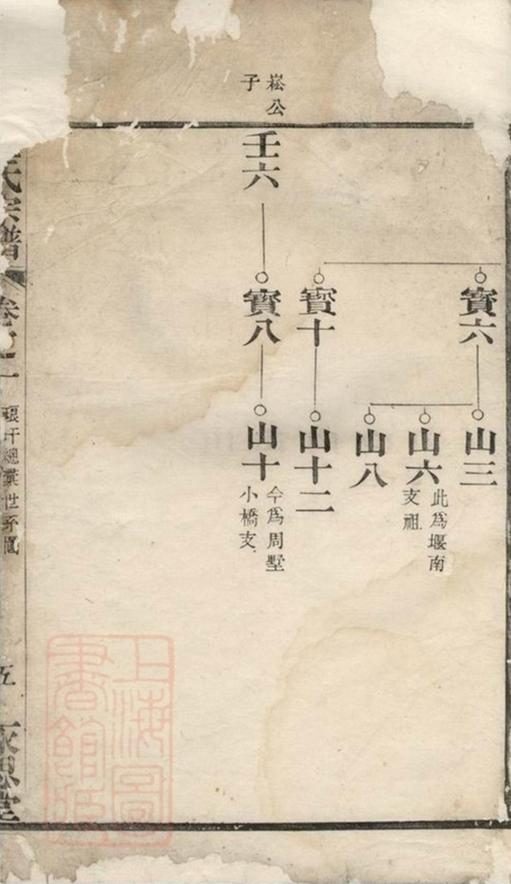 崧公
子
壬六
寳六
寳十
寳八
山三
山六
此爲堰南
支祖
山八
山十二
山十
今爲周墅
小橋支
氏宗譜
卷之一
五
上海圖
書館藏